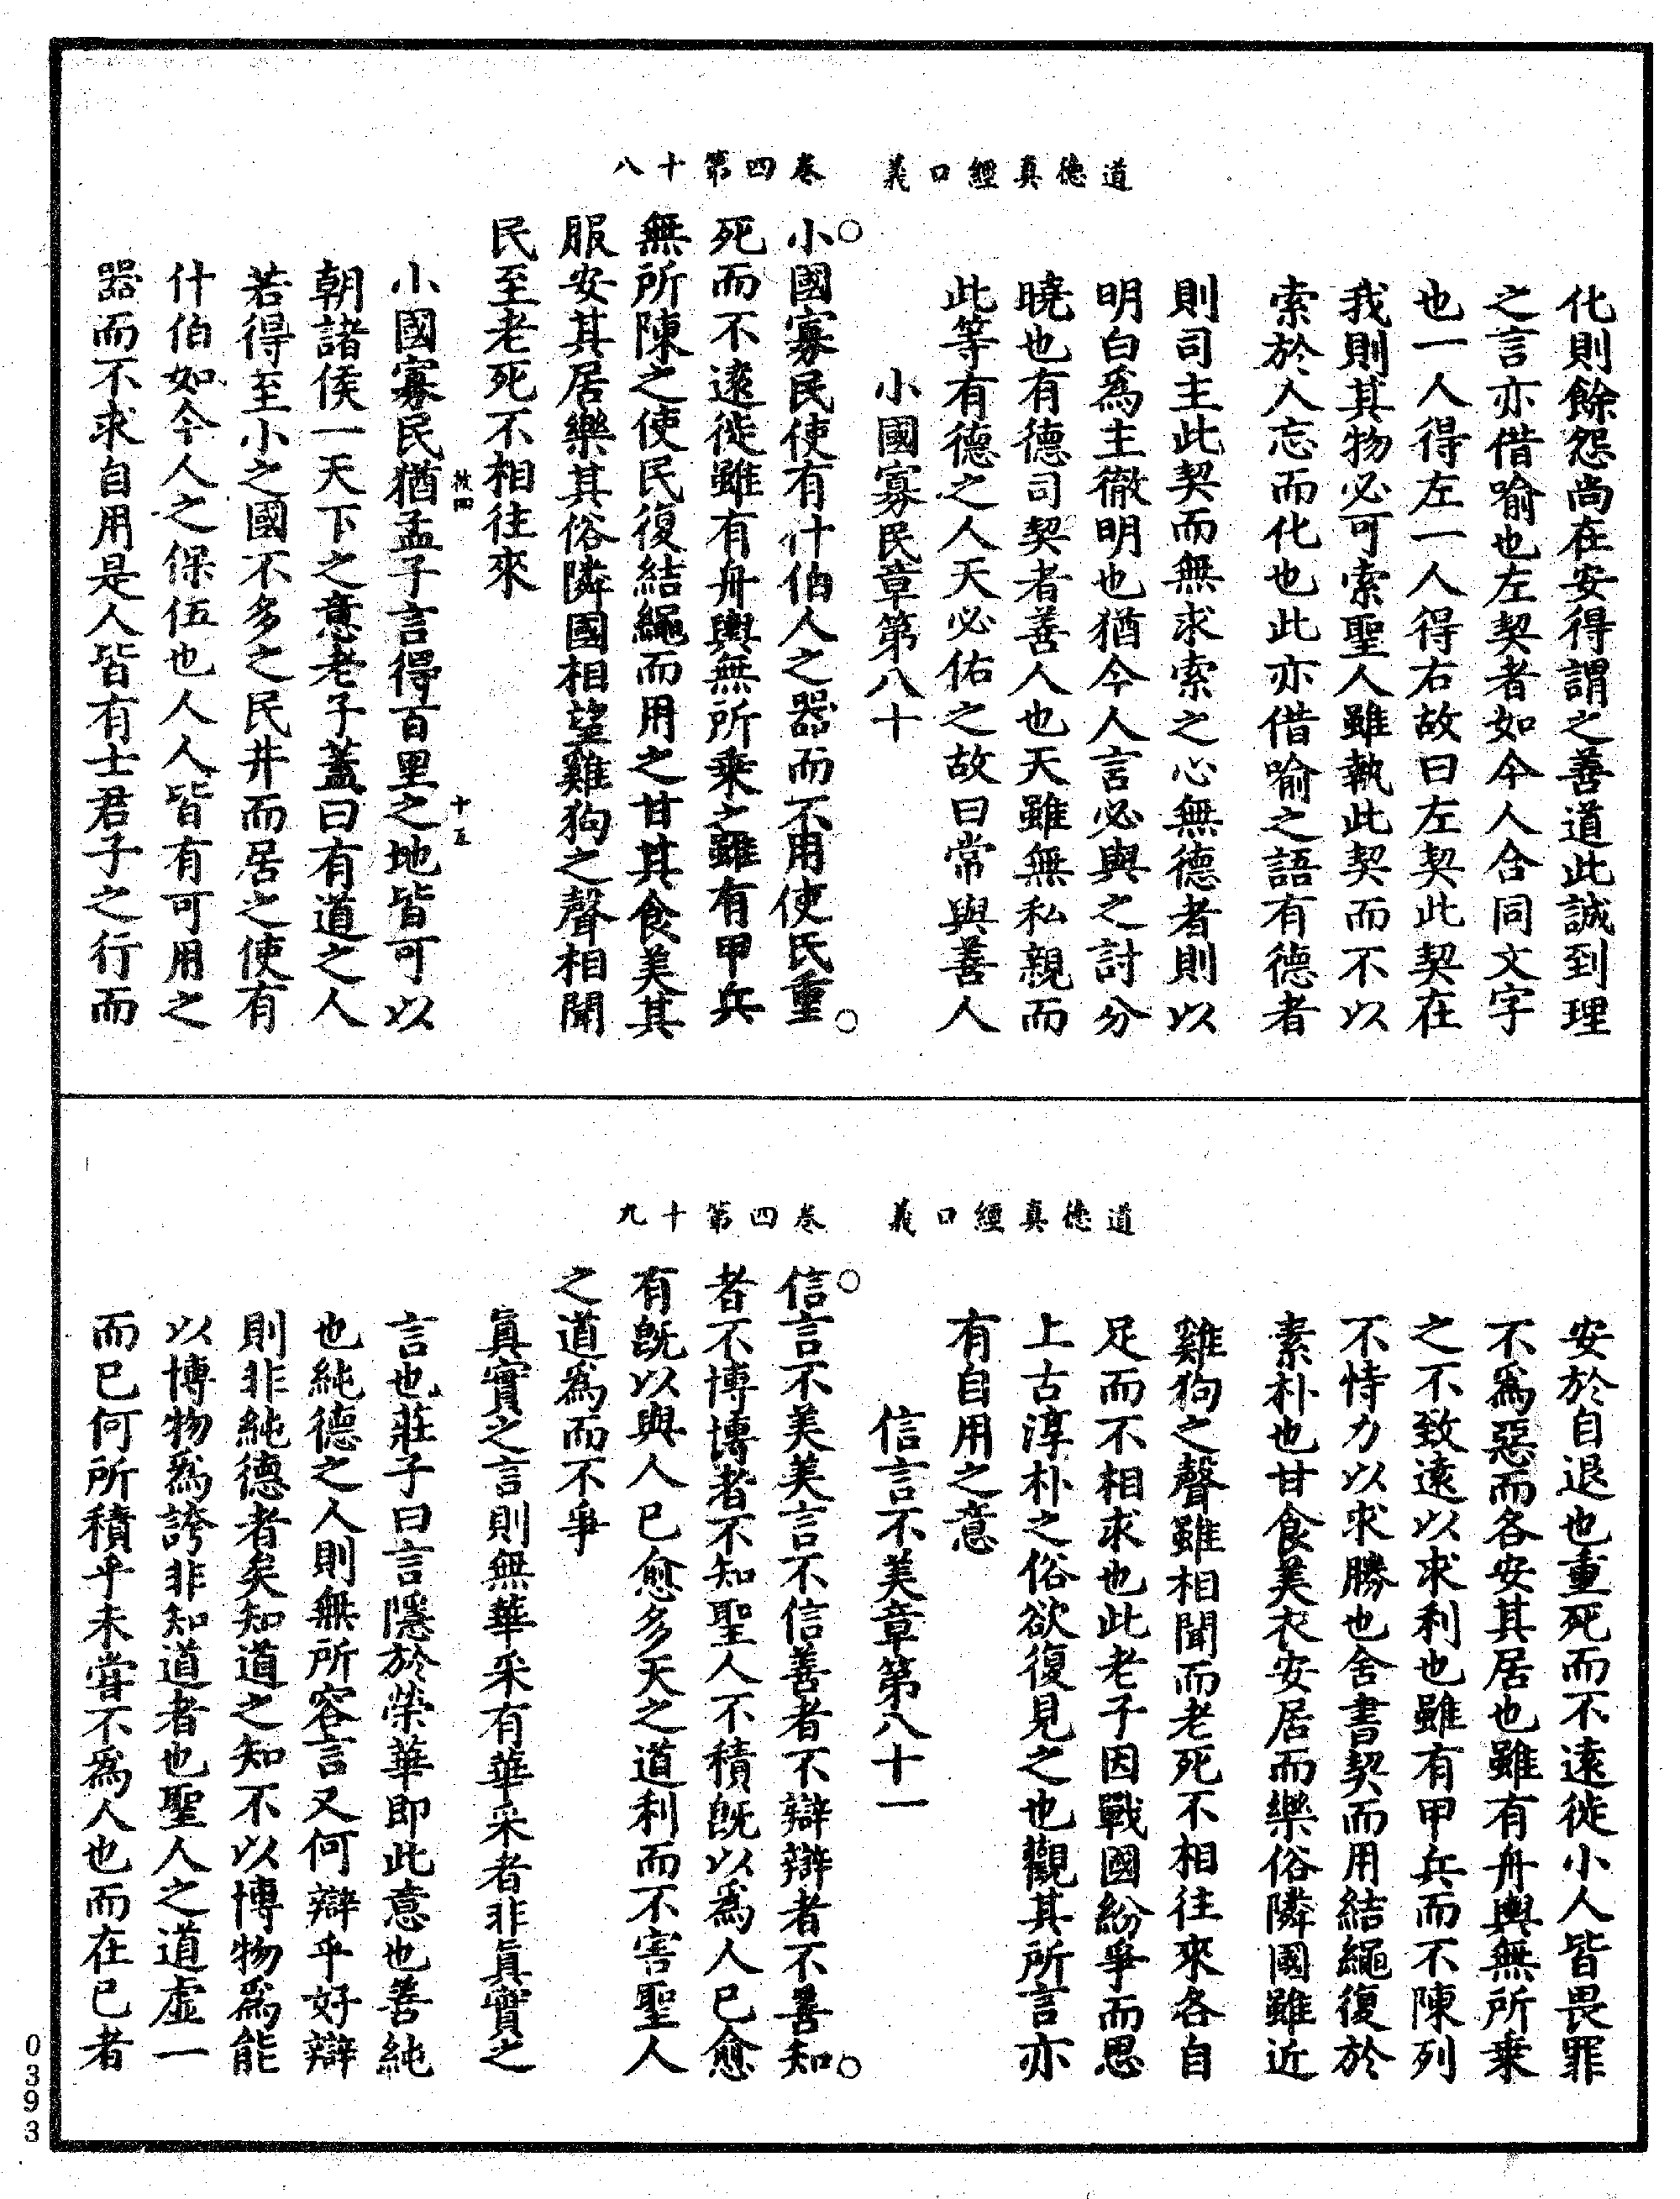 道德真經口義　卷四第十八
化則餘怨尚在安得謂之善道此誠到理
之言亦借喻也左契者如今人合同文字
也一人得左一人得右故曰左契此契在
我則其物必可索聖人雖執此契而不以
索於人忘而化也此亦借喻之語有德者
則司主此契而無求索之心無德者則以
明白爲主徹明也猶今人言必與之討分
曉也有德司契者善人也天雖無私親而
此等有德之人天必佑之故曰常與善人
小國寡民章第八十
○小國寡民使有什伯人之器而不用使民重○
死而不遠徙雖有舟輿無所乘之雖有甲兵
無所陳之使民復結繩而用之甘其食美其
服安其居樂其俗隣國相望雞狗之聲相聞
民至老死不相往來
十五
小國寡民猶孟子言得百里之地皆可以
朝諸侯一天下之意老子蓋曰有道之人
若得至小之國不多之民井而居之使有
什伯如今人之保伍也人人皆有可用之
器而不求自用是人皆有士君子之行而
道德真經口義　卷四第十九
安於自退也重死而不遠徙小人皆畏罪
不爲惡而各安其居也雖有舟輿無所乘
之不致遠以求利也雖有甲兵而不陳列
不恃力以求勝也舍書契而用結繩復於
素朴也甘食美衣安居而樂俗隣國雖近
雞狗之聲雖相聞而老死不相往來各自
足而不相求也此老子因戰國紛爭而思
上古淳朴之俗欲復見之也觀其所言亦
有自用之意
信言不美章第八十一
○信言不美美言不信善者不辯辯者不善知○
者不博博者不知聖人不積既以爲人已愈
有既以與人已愈多天之道利而不害聖人
之道爲而不爭
眞實之言則無華采有華采者非眞實之
言也莊子曰言隱於榮華即此意也善純
也純德之人則無所容言又何辯乎好辯
則非純德者矣知道之知不以博物爲能
以博物爲誇非知道者也聖人之道虛一
而已何所積乎未嘗不爲人也而在已者
0393